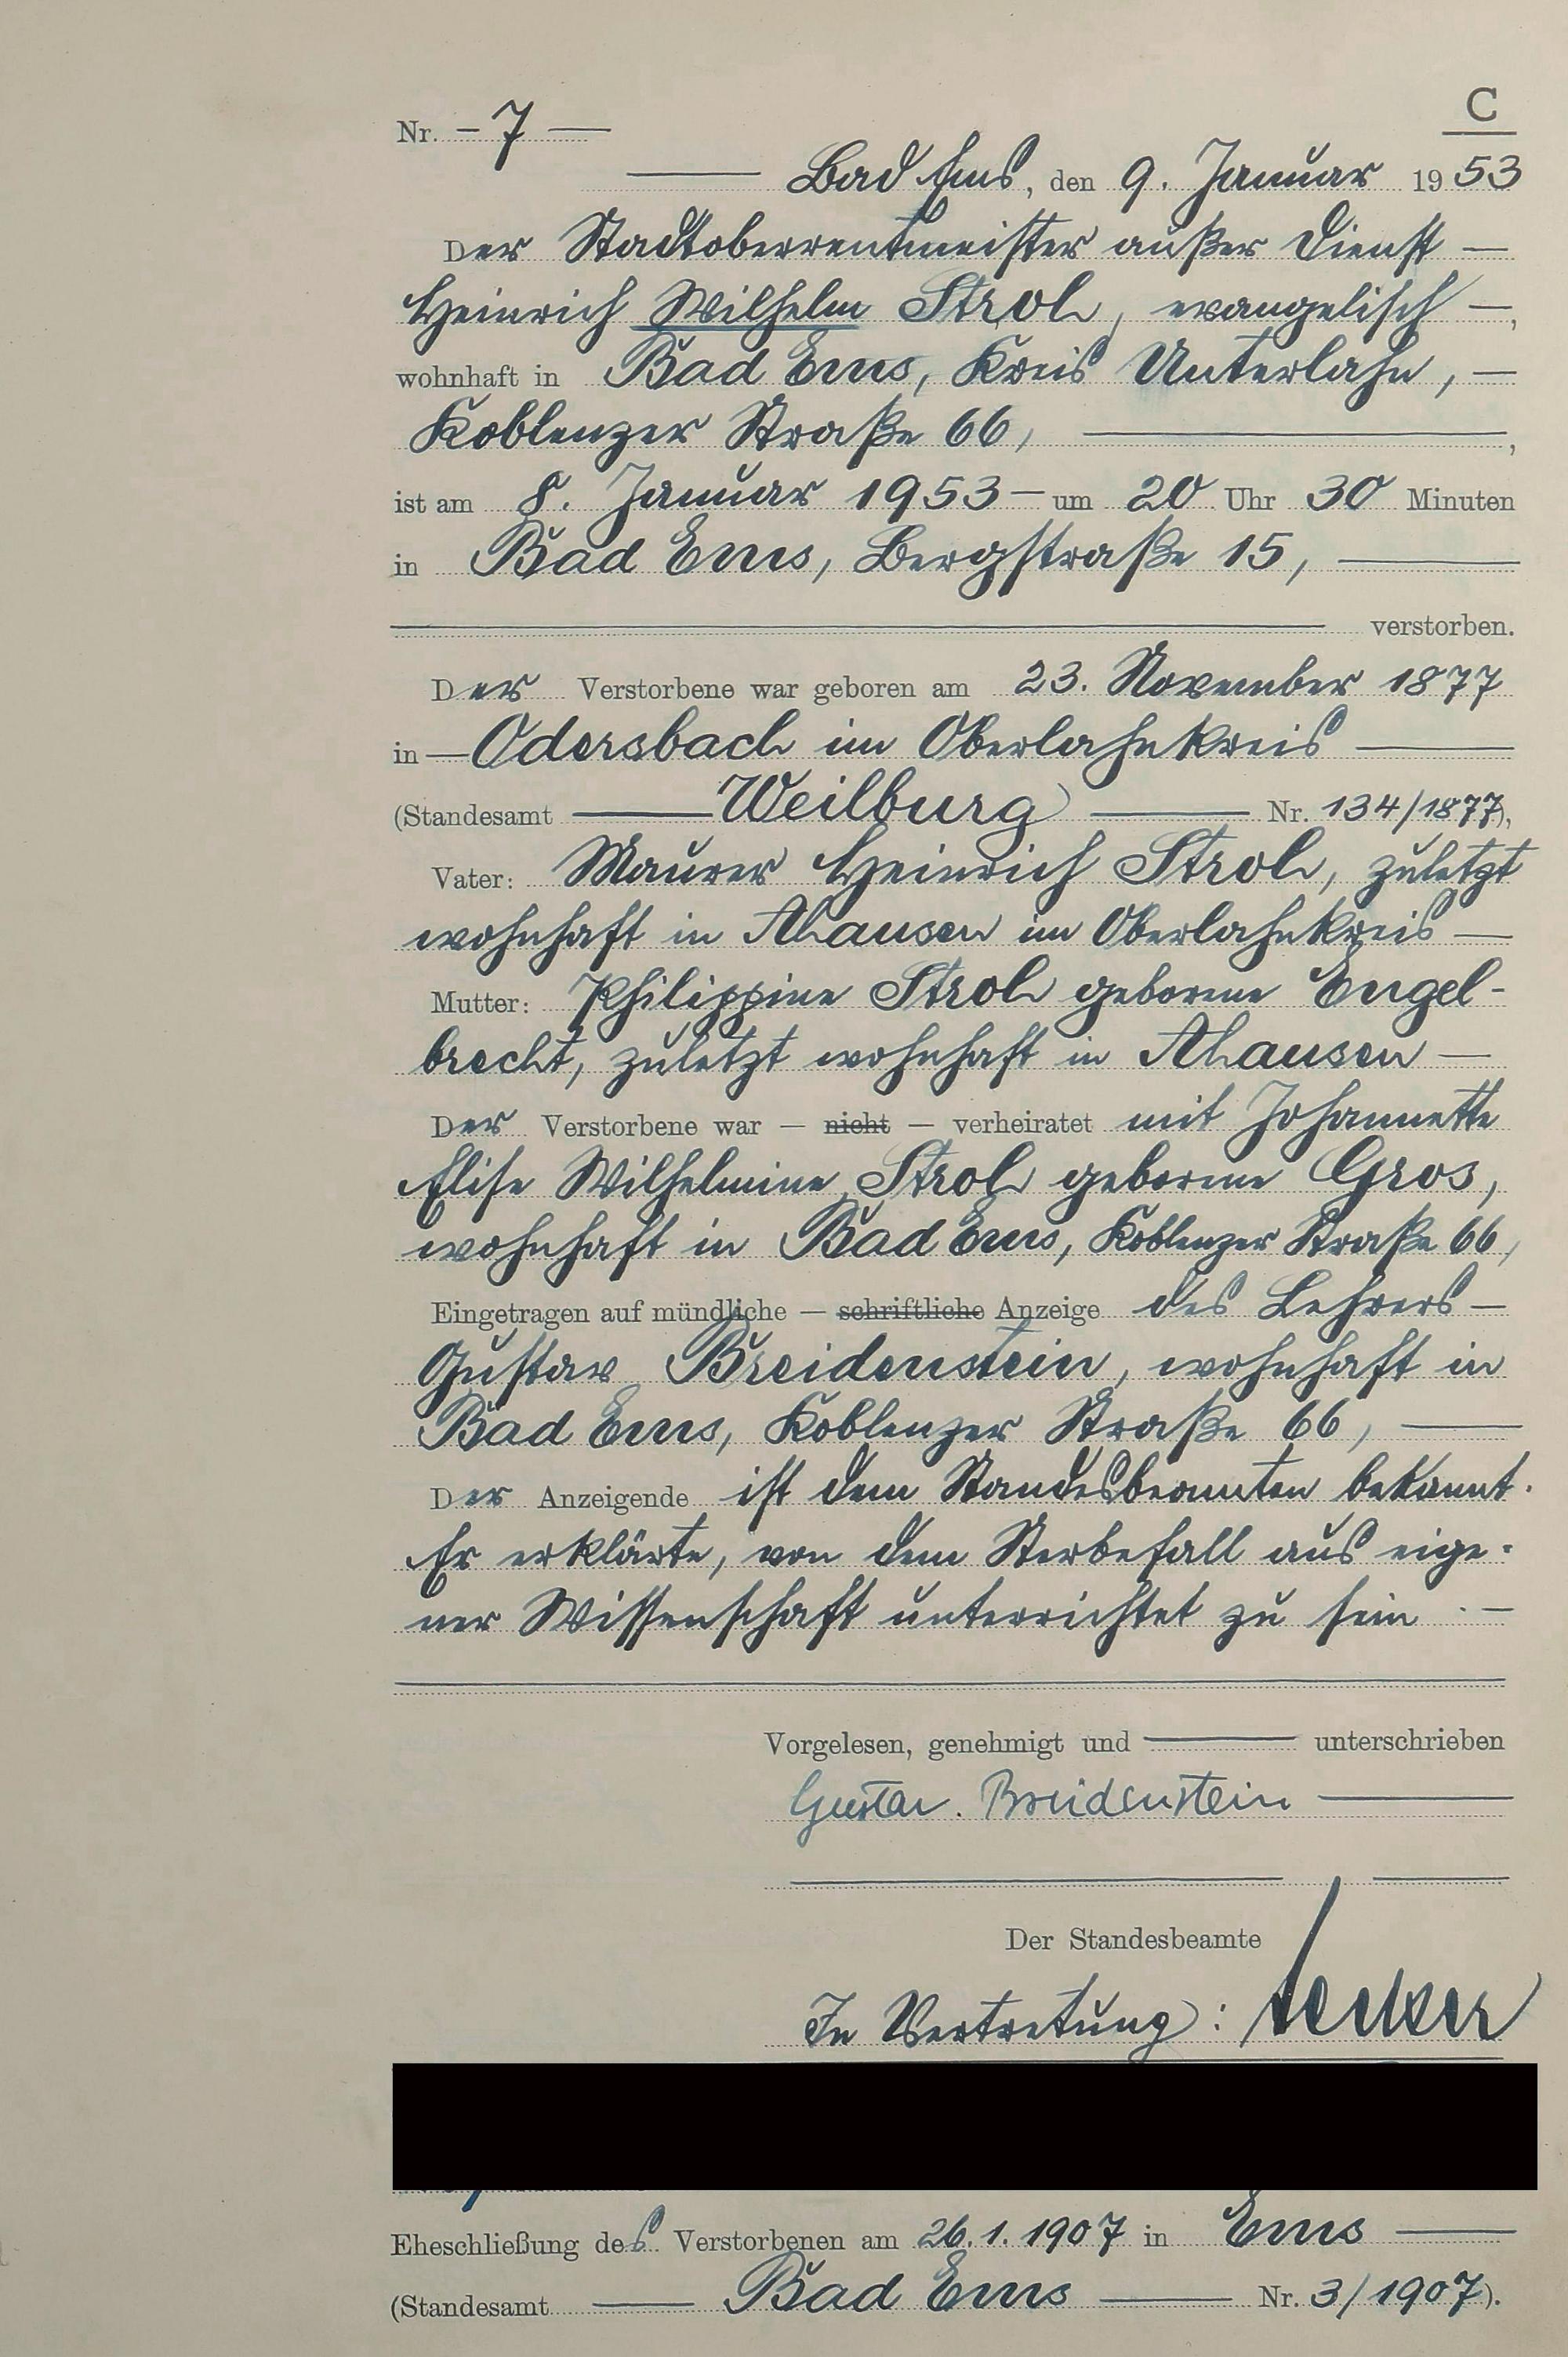 C
Nr. – 7 —
— Bad Ems, den 9. Januar 1953
Der Stadtoberrentmeister außer Dienst —
Heinrich Wilhelm Stroh, evangelisch —,
wohnhaft in Bad Ems, Kreis Unterlahn, —
Koblenzer Straße 66, —,
ist am 8. Januar 1953 — um 20 Uhr 30 Minuten
in Bad Ems, Bergstraße 15, —
— verstorben.
Der Verstorbene war geboren am 23. November 1877
in — Odersbach im Oberlahnkreis —
(Standesamt — Weilburg — Nr. 134/1877),
Vater: Maurer Heinrich Stroh, zuletzt
wohnhaft in Ahausen im Oberlahnkreis —
Mutter: Philippine Stroh geborene Engel-
brecht, zuletzt wohnhaft in Ahausen —
Der Verstorbene war — nicht — verheiratet mit Johannette
Elise Wilhelmine Stroh geborene Gros,
wohnhaft in Bad Ems, Koblenzer Straße 66,
Eingetragen auf mündliche — schriftliche Anzeige des Lehrers —
Gustav Breidenstein, wohnhaft in
Bad Ems, Koblenzer Straße 66, —
Der Anzeigende ist dem Standesbeamten bekannt.
Er erklärte, von dem Sterbefall aus eige-
ner Wissenschaft unterrichtet zu sein. —
Vorgelesen, genehmigt und — unterschrieben
Gustav. Breidenstein —
Der Standesbeamte
In Vertretung:
Eheschließung des Verstorbenen am 26.1.1907 in Ems —
(Standesamt — Bad Ems — Nr. 3/1907).